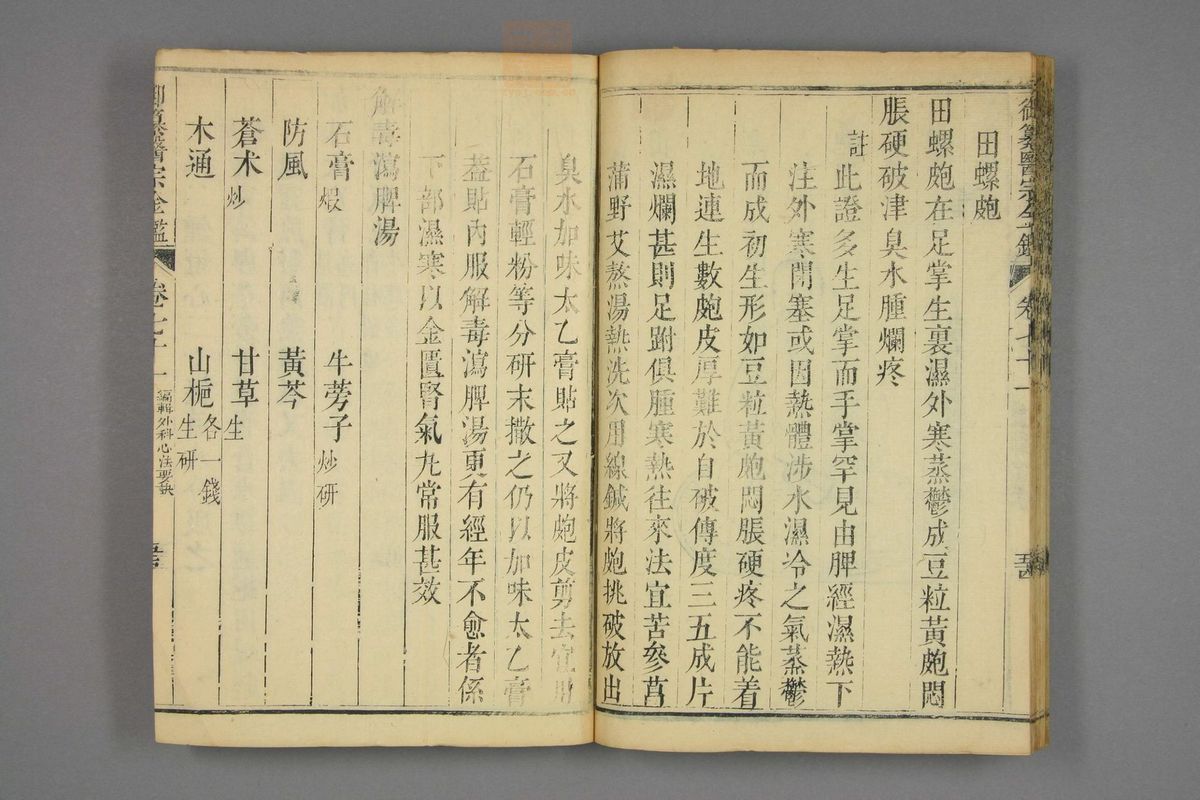 御纂醫宗金鑑 卷七十一 五
田螺皰
田螺皰在足掌生裏濕外寒蒸鬱成豆粒黃皰悶
脹硬破津臭水腫爛疼
註 此證多生足掌而手掌罕見由脾經濕熱下
注外寒閉塞或因熱體涉水濕冷之氣蒸鬱
而成初生形如豆粒黃皰悶脹硬疼不能着
地連生數皰皮厚難於自破傳度三五成片
濕爛甚則足跗俱腫寒熱往來法宜苦參菖
蒲野艾熬湯熱洗次用線鍼將皰挑破放出
臭水加味太乙膏貼之又將皰皮剪去宜用
石膏輕粉等分研末撒之仍以加味太乙膏
葢貼內服解毒瀉脾湯更有經年不愈者係
下部濕寒以金匱腎氣丸常服甚效
解毒瀉脾湯
石膏煆 牛蒡子炒研
防風 黃芩
蒼术炒 甘草生
木通 山梔生研 各一錢
御纂醫宗金鑑 卷七十一 編輯外科心法要訣 五